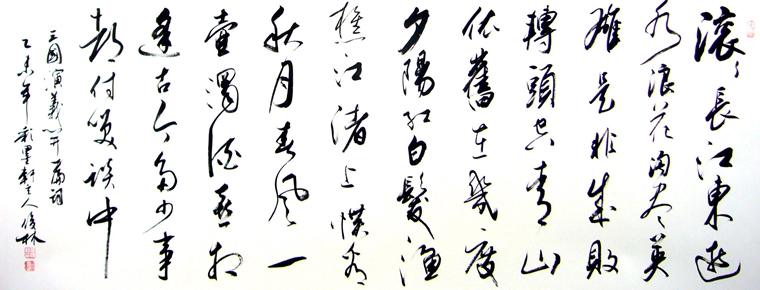 滚々長江東逝
水浪花淘尽英
雄是非成敗
轉頭空青山
依舊在幾度
夕陽红白髮渔
樵江渚上惯看
秋月春风一
壶濁酒喜相
逢古今多少事
都付笑谈中
三國演義开篇词
乙未年彩墨軒主人俊林